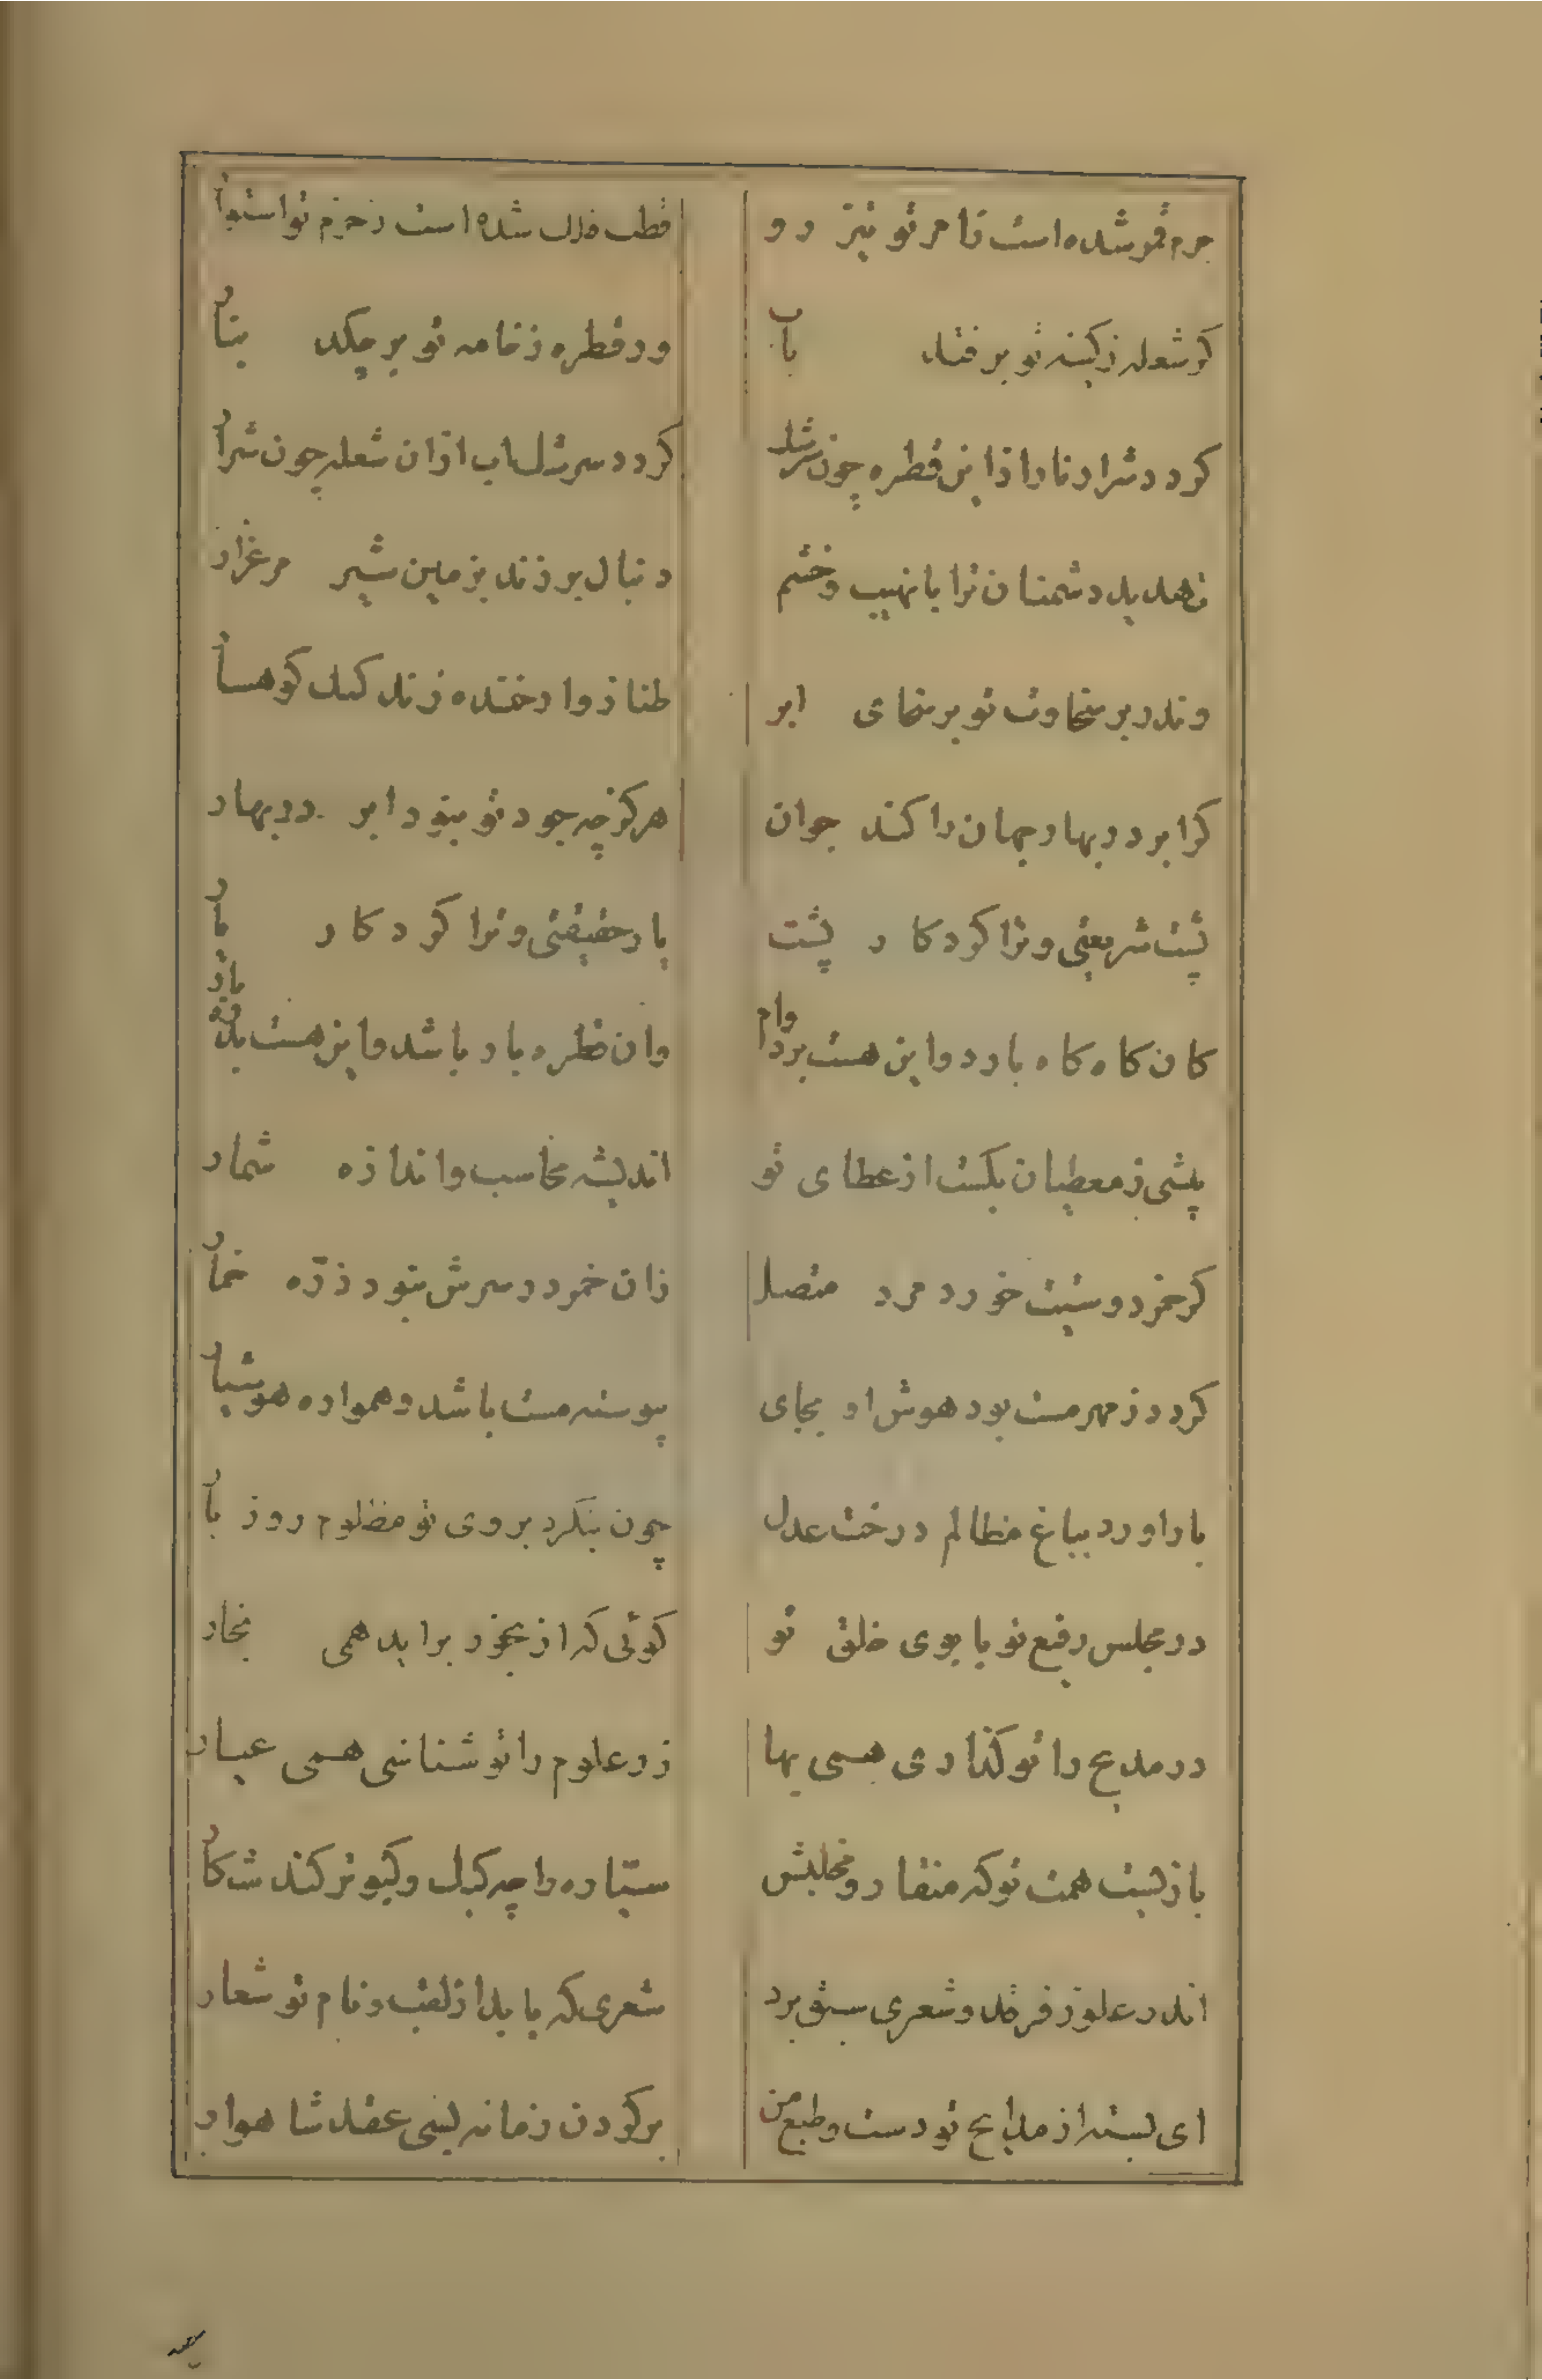 جرم قمر شده است ز امر تو تیز رو
قطب فلک شده است ز حزم تو استوار
کر شعله ز کینه تو بر فتد باب
ور قطره ز خامه تو بر چکد بنار
کردد شرار نار از این قطره چون سرشک
کردد سرشک اب ازان شعله چون شرار
تهدید دشمنان ترا با نهیب و خشم
دنبال بر زند بزمین شیر مرغزار
وندر بر سخاوت تو بر سخای ابر
طناز وار خنده زند کبک کوهسار
کر ابر در بهار جهان را کند جوان
هرکز چه جود تو بنود ابر در بهار
پشت شریعتی و ترا کردکار پشت
یار حقیقتی و ترا کردکار یار
کان کاه کاه بارد و این هست بر دوام
وان قطره بار باشد و این هست بدره بار
پیشی ز معطیان بکست از عطای تو
اندیشه محاسب و اندازه شمار
کر خمر دوستیت خورد مرد متصل
زان خمر در سرش بنود ذره خمار
کردد ز مهر مست بود هوش او بجای
پیوسته مست باشد و همواره هوشیار
بار اورد بباغ مظالم درخت عدل
چون بنکرد بروی تو مظلوم روز بار
در مجلس رفیع تو با بوی خلق تو
کوئی که از بخور براید همی بخار
در مدیح را تو کذاری همی بها
زر علوم را تو شناسی همی عیار
بازیست همت تو که منقار و مخلبش
سیاره را چه کبک و کبوتر کند شکار
اندر علو ز فرقد و شعری سبق برد
شعری که یابد از لقب و نام تو شعار
ای بسته از مدایح تو دست و طبع من
بر کردن زمانه بسی عقد شاهوار